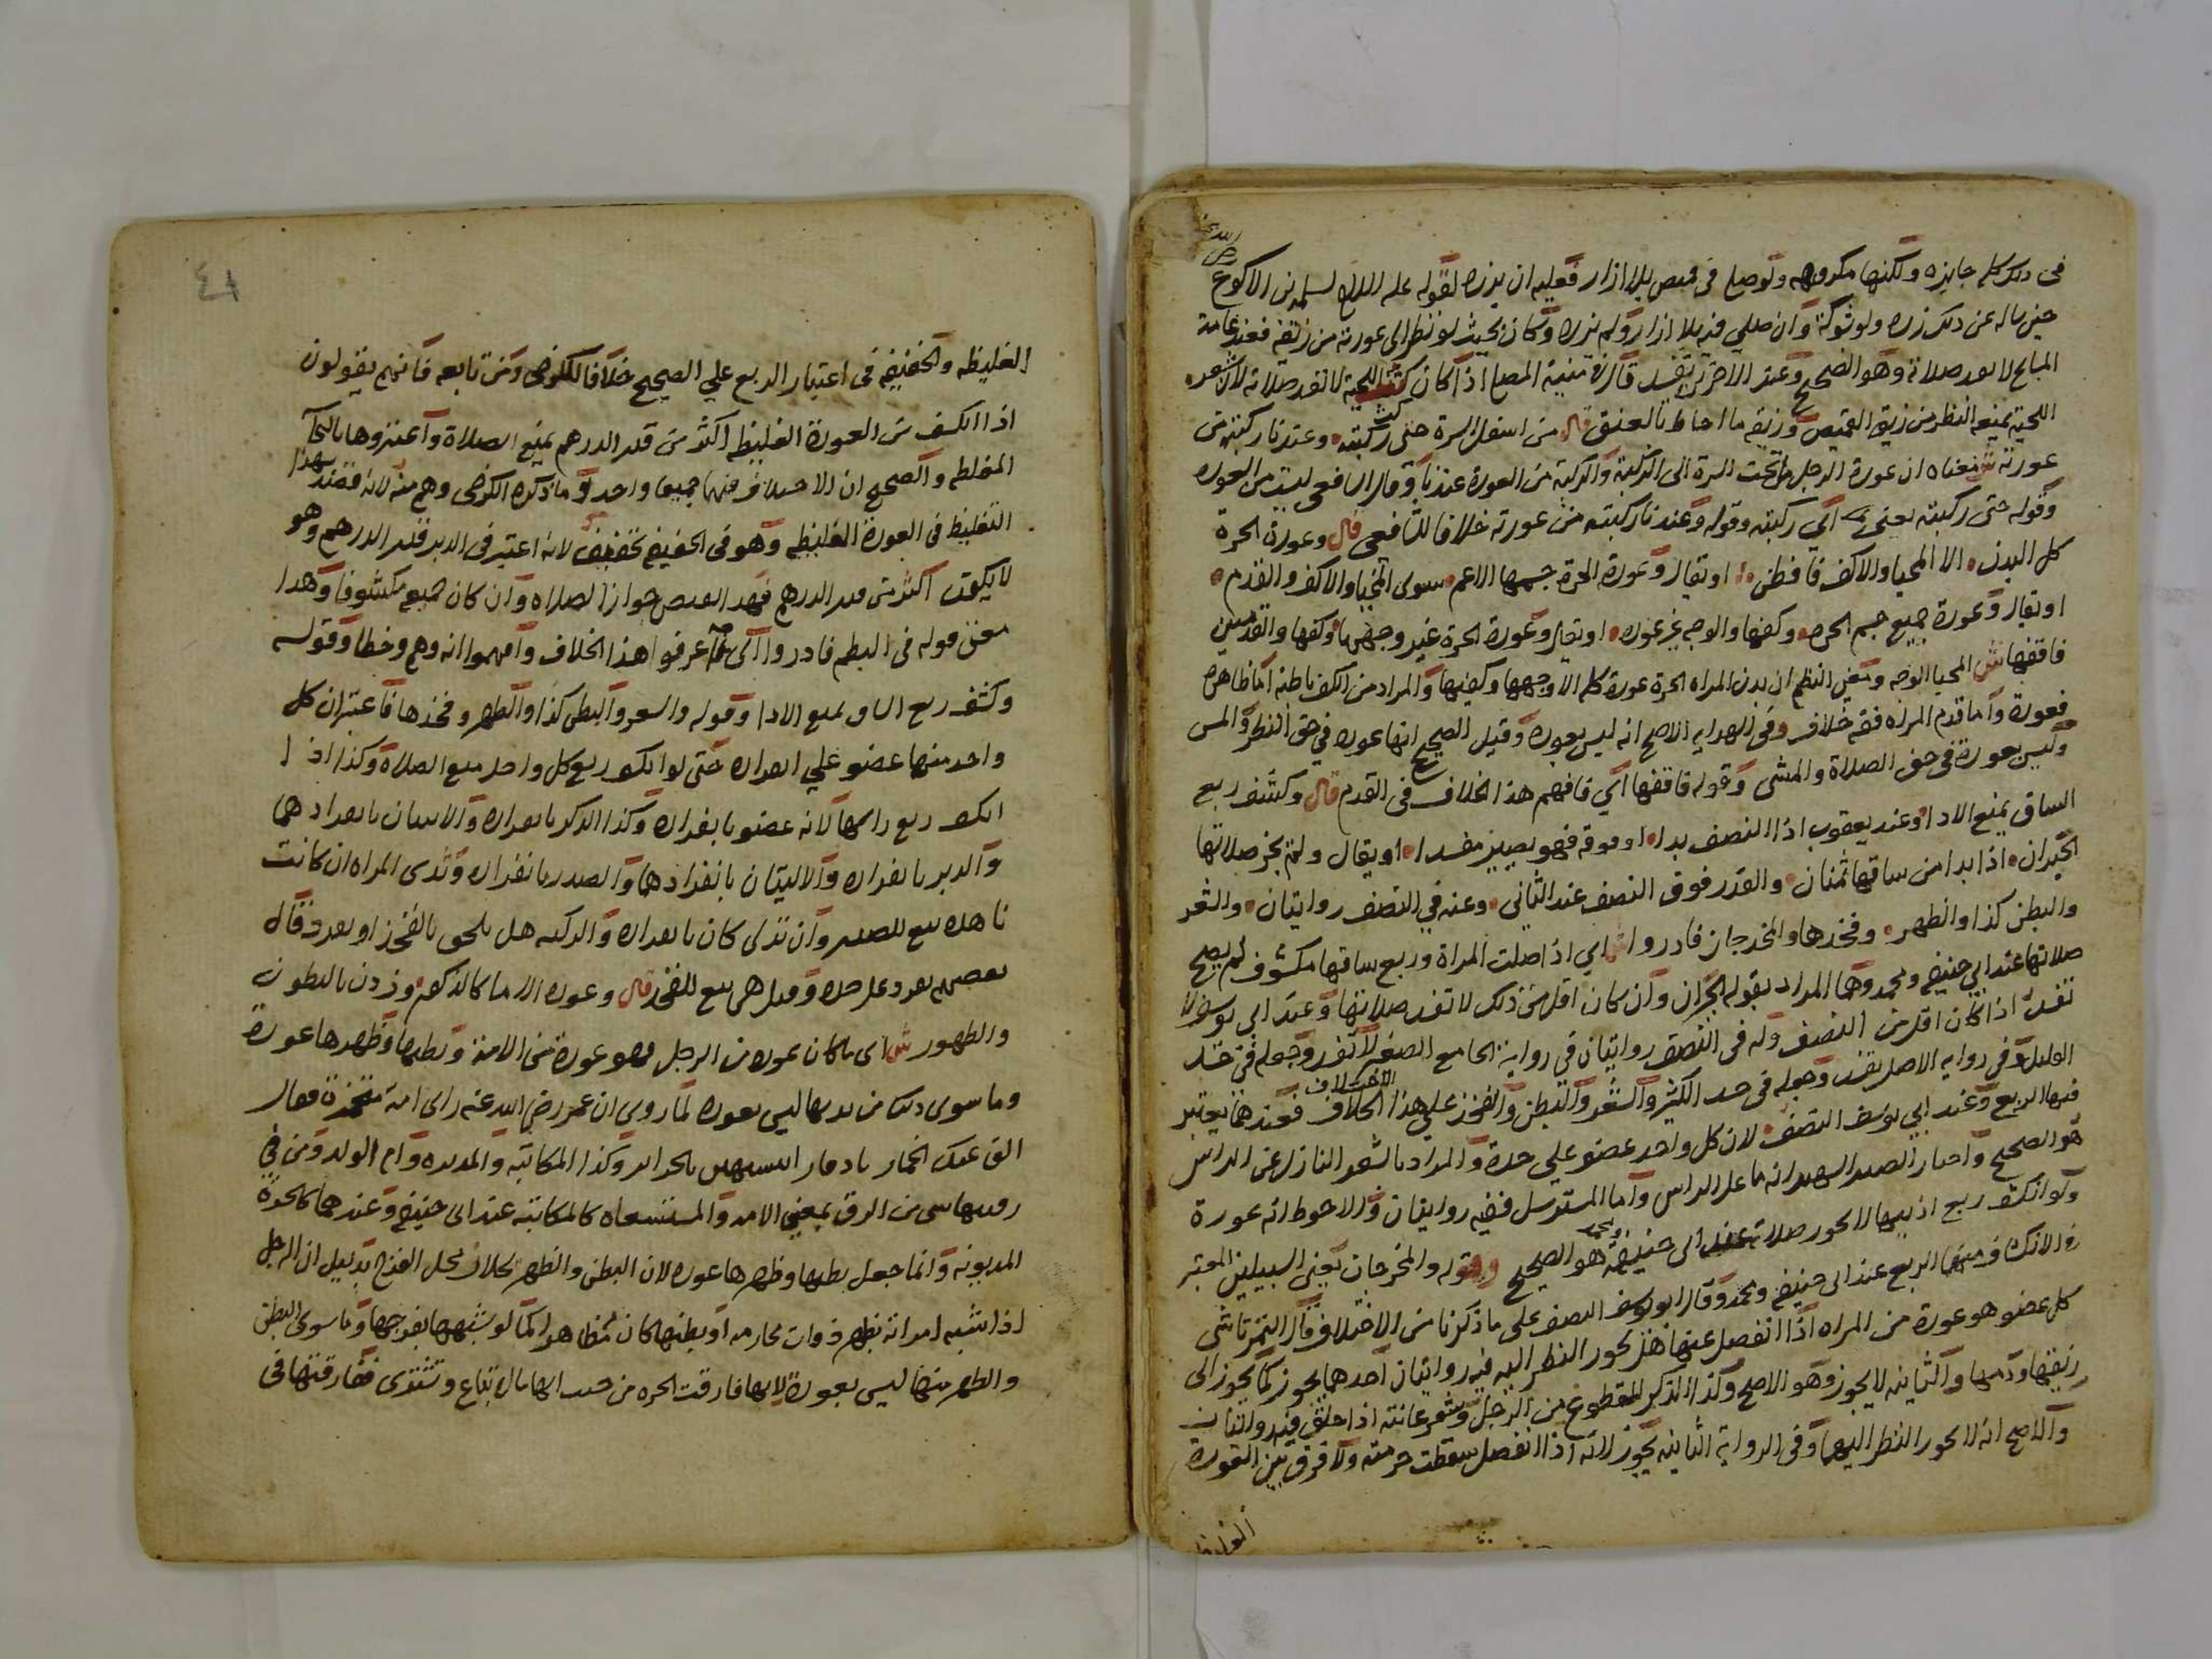 في ذلك كله جايزه ولكنها مكروهه ولو صلي في قميص بلا ازار فعليه ان يزره لقوله عليه السلام لسلمه بن الاكوع
رضي الله عنه
حين ساله عن ذلك زره ولو بشوكة وان صلي فيه بلا ازار ولم يزره وكان بحيث لو نظر الى عورته من زيقه فعند عامة
المشايخ لا تفسد صلاته وهو الصحيح وعند الاخرين تفسد قال في منية المصلي اذا كان كث اللحية لا تفسد صلاته لان شعر
اللحية يمنع النظر من زيق القميص وزيقه ما احاط بالعنق قال من اسفل السرة حتى ركبته وعندنا ركبته من
عورته ش معناه ان عورة الرجل ما تحت السرة الى الركبة والركبة من العورة عندنا وقال الشافعي ليست من العوره
وقوله حتى ركبته يعني اي ركبته وقوله وعندنا ركبته من عورته خلافا للشافعي قال وعورة الحرة
كل البدن الا المحيا والاكف فافطن او يقال وعورة الحرة جسمها الاعم سوى المحيا والاكف والقدم
او يقال وعورة جميع جسم الحره وكفها والوجه غير عوره او يقال وعورة الحرة غير وجهها وكفها والقدمين
فافقها ش المحيا الوجه ومعنى النظم ان بدن المراه الحرة عورة كله الا وجهها وكفيها والمراد من الكف باطنه اما ظاهره
فعورة واما قدم المراه ففيه خلاف وفي الهدايه الاصح انه ليس بعورة وقيل الصحيح انها عوره في حق النظر والمس
وليس بعورة في حق الصلاة والمشي وقوله فافقها اي فافهم هذا الخلاف في القدم قال وكشف ربع
الساق يمنع الادا وعند يعقوب اذا النصف بدا او فوقه فهو يصير مفسدا او يقال ولم يجز صلاتها
الحبران اذا بدا من ساقها ثمنان والقدر فوق النصف عند الثاني وعنه في النصف روايتان والشعر
والبطن كذا والظهر وفخذها والمخرجان فادروا ش اي اذا صلت المراة وربع ساقها مكشوف لم يصح
صلاتها عند ابي حنيفه ومحمد وهما المراد بقوله الحبران وان كان اقل من ذلك لا تفسد صلاتها وعند ابي يوسف لا
تفسد اذا كان اقل من النصف وله في النصف روايتان في رواية الجامع الصغير لا تفسد وجعله في حد
القليل وفي روايه الاصل تفسد وجعله في حد الكثير والشعر والبطن والفخذ علي هذا الاختلاف فعندهما يعتبر
فيها الربع وعند ابي يوسف النصف لان كل واحد عضو علي حدة والمراد بالشعر النازل عن الراس
هو الصحيح واختار الصدر الشهيد انه ما على الراس واما المسترسل ففيه روايتان والاحوط انه عورة
ولو انكشف ربع اذنيها لا تجوز صلاته عند ابي حنيفة ومحمد هو الصحيح وقوله والمخرجان يعني السبيلين المعتبر
في الانكشاف منهما الربع عند ابي حنيفه ومحمد وقال ابو يوسف النصف على ما ذكرنا من الاختلاف قال التمرتاشي
كل عضو هو عورة من المراه اذا انفصل عنها هل يجوز النظر اليه فيه روايتان احدهما يجوز كما يجوز الى
ريقها ودمعها والثانيه لا يجوز وهو الاصح وكذا الذكر المقطوع من الرجل وشعر عانته اذا حلق فيه روايتان
والاصح انه لا يجوز النظر اليها وفي الرواية الثانيه يجوز لانه اذا انفصل سقطت حرمته ولا فرق بين العورة
الغليظه
٤١
الغليظه والخفيفه في اعتبار الربع علي الصحيح خلافا للكرخي ومن تابعه فانهم يقولون
اذا انكشف من العورة الغليظه اكثر من قدر الدرهم يمنع الصلاة واعتبروها بالنجاسة
المغلظه والصحيح ان الاختلاف فيهما جميعا واحد وما ذكره الكرخي وهم منه لانه قصد بهذا
التغليظ في العورة الغليظه وهو في الحقيقه تخفيف لانه اعتبر في الدبر قدر الدرهم وهو
لا يكون اكثر من قدر الدرهم فهذا يقتضي جواز الصلاه وان كان جميعه مكشوفا وهذا
معنى قوله في النظم فادروا اي اعرفوا هذا الخلاف وافهموا انه وهم وخطا وقوله
وكشف ربع الساق يمنع الادا وقوله والشعر والبطن كذا والظهر وفخذها فاعتبر ان كل
واحد منها عضو علي انفراده حتى لو انكشف ربع كل واحد منع الصلاة وكذا اذا
انكشف ربع راسها لانه عضو بانفراده وكذا الذكر بانفراده والانثيان بانفرادهما
والدبر بانفراده والاليتان بانفرادهما والصدر بانفراده وثدي المراه ان كانت
ناهده تبع للصدر وان تدلى كان بانفراده والركبه هل يلحق بالفخذ او يفرد قال
بعضهم يفرد على حده وقيل هي تبع للفخذ قال وعوره الاما كالذكور وزدن بالبطون
والظهور ش اي ما كان عوره من الرجل فهو عورة من الامة وبطنها وظهرها عورة
وما سوى ذلك من بدنها ليس بعوره لما روي ان عمر رضي الله عنه راى امة متخمرة فقال
الق عنك الخمار يا دفار اتتشبهين بالحراير وكذا المكاتبه والمدبره وام الولد ومن في
رقبتها شي من الرق بمعنى الامه والمستسعاه كالمكاتبه عند ابي حنيفه وعندهما كالحرة
المديونه وانما جعل بطنها وظهرها عوره لان البطن والظهر يحلان محل الفرج بدليل ان الرجل
اذا شبه امراته بظهر ذوات محارمه او بطنها كان مظاهرا كما لو شبهها بفرجها وما سوى البطن
والظهر منها ليس بعورة لانها فارقت الحره من حيث انها مال تباع وتشترى ففارقتها في